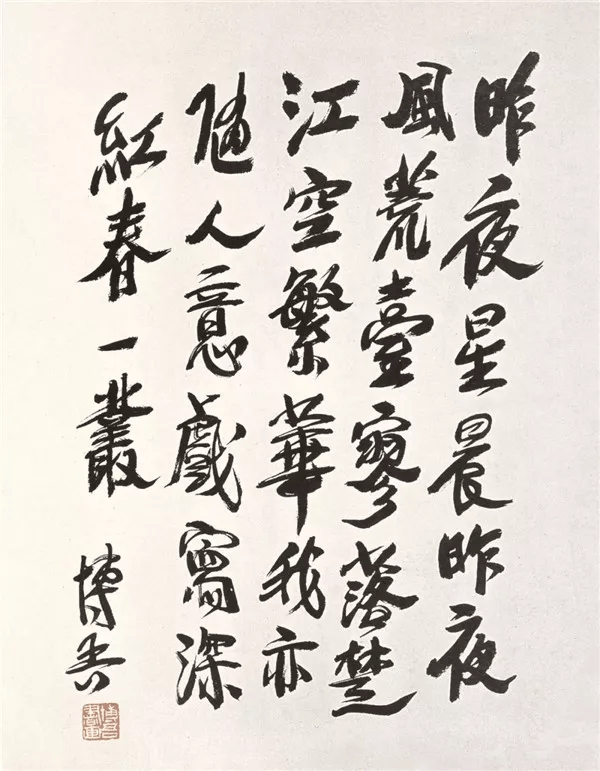 昨夜星晨昨夜
風荒臺寥落楚
江空繁華我亦
隨人意戲寫深
紅春一叢
博吾
博吾書畫